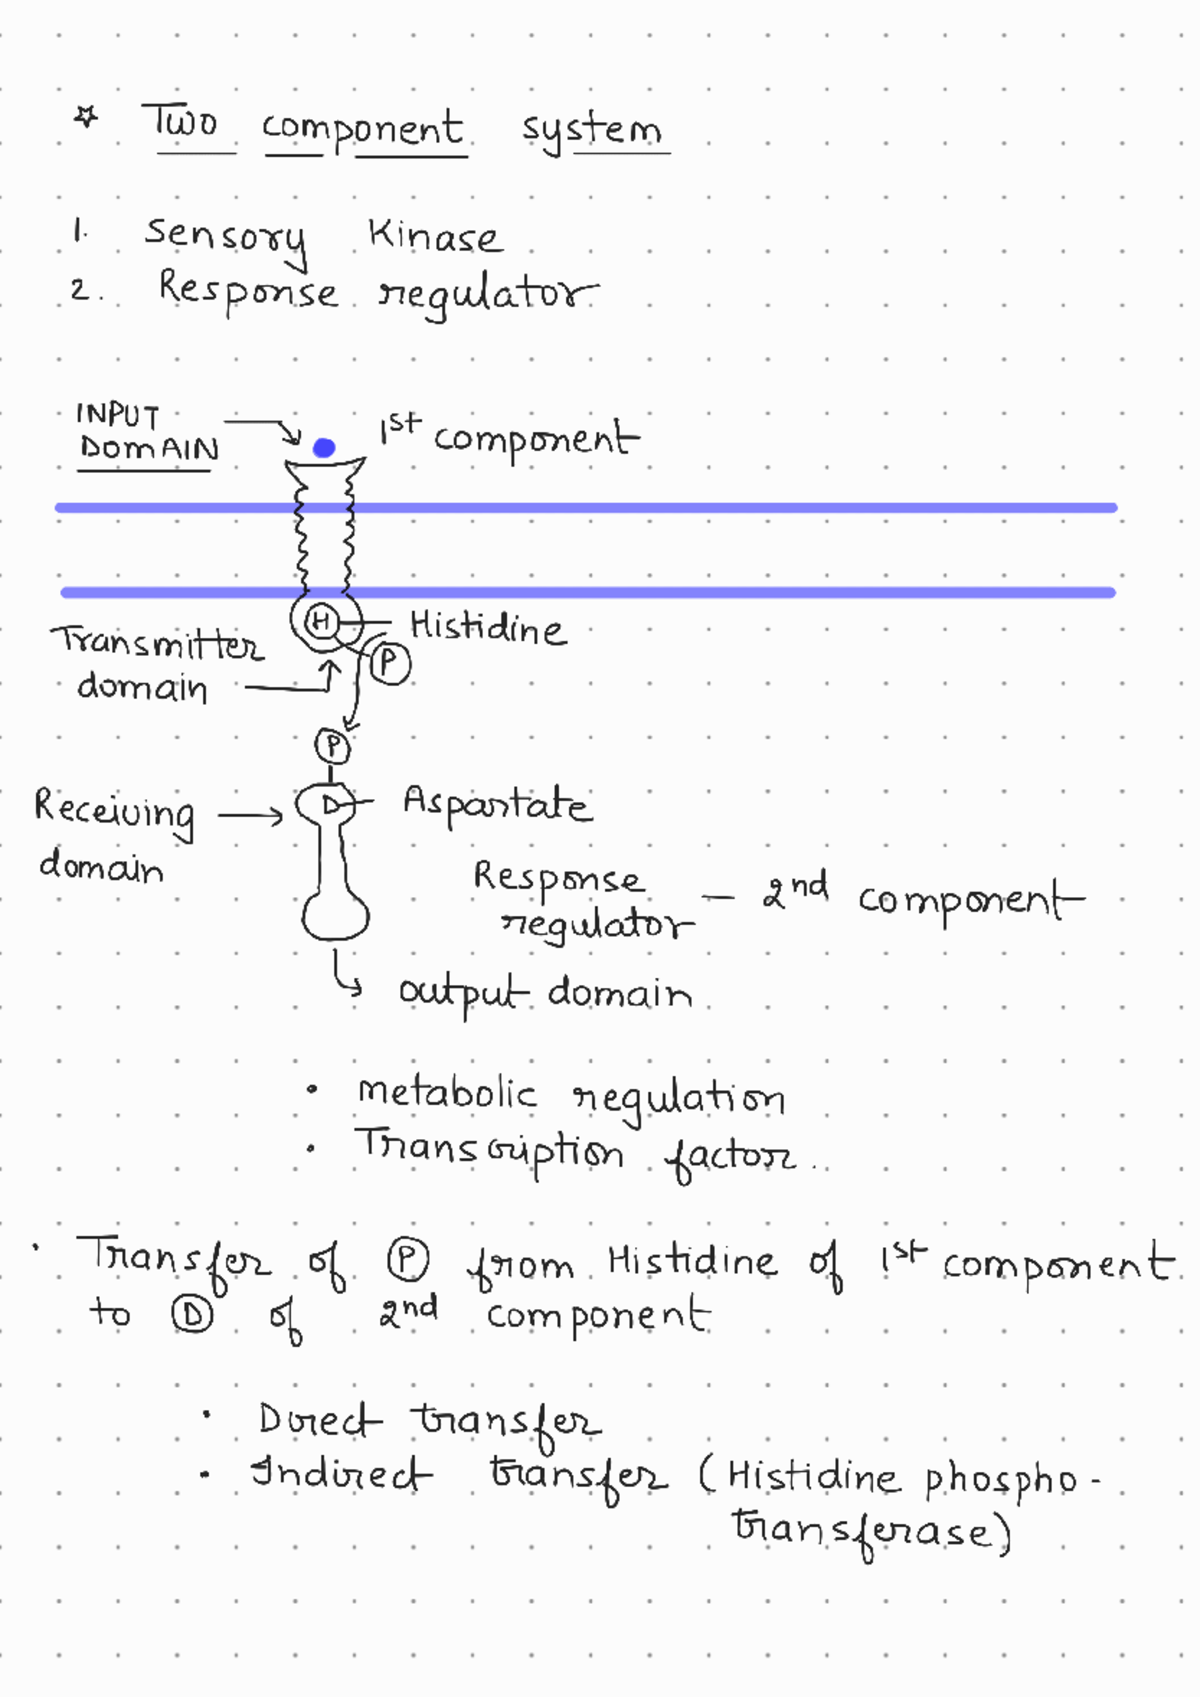 ☆ Two component system
1. Sensory Kinase
2. Response regulator
INPUT
DOMAIN
1st component
H
Histidine
Transmitter
domain
P
P
Receiving
domain
D
Aspartate
Response
regulator — 2nd component
output domain
• metabolic regulation
• Transcription factor.
• Transfer of P from Histidine of 1st component
to D of 2nd component
• Direct transfer
• Indirect transfer (Histidine phospho-
transferase)